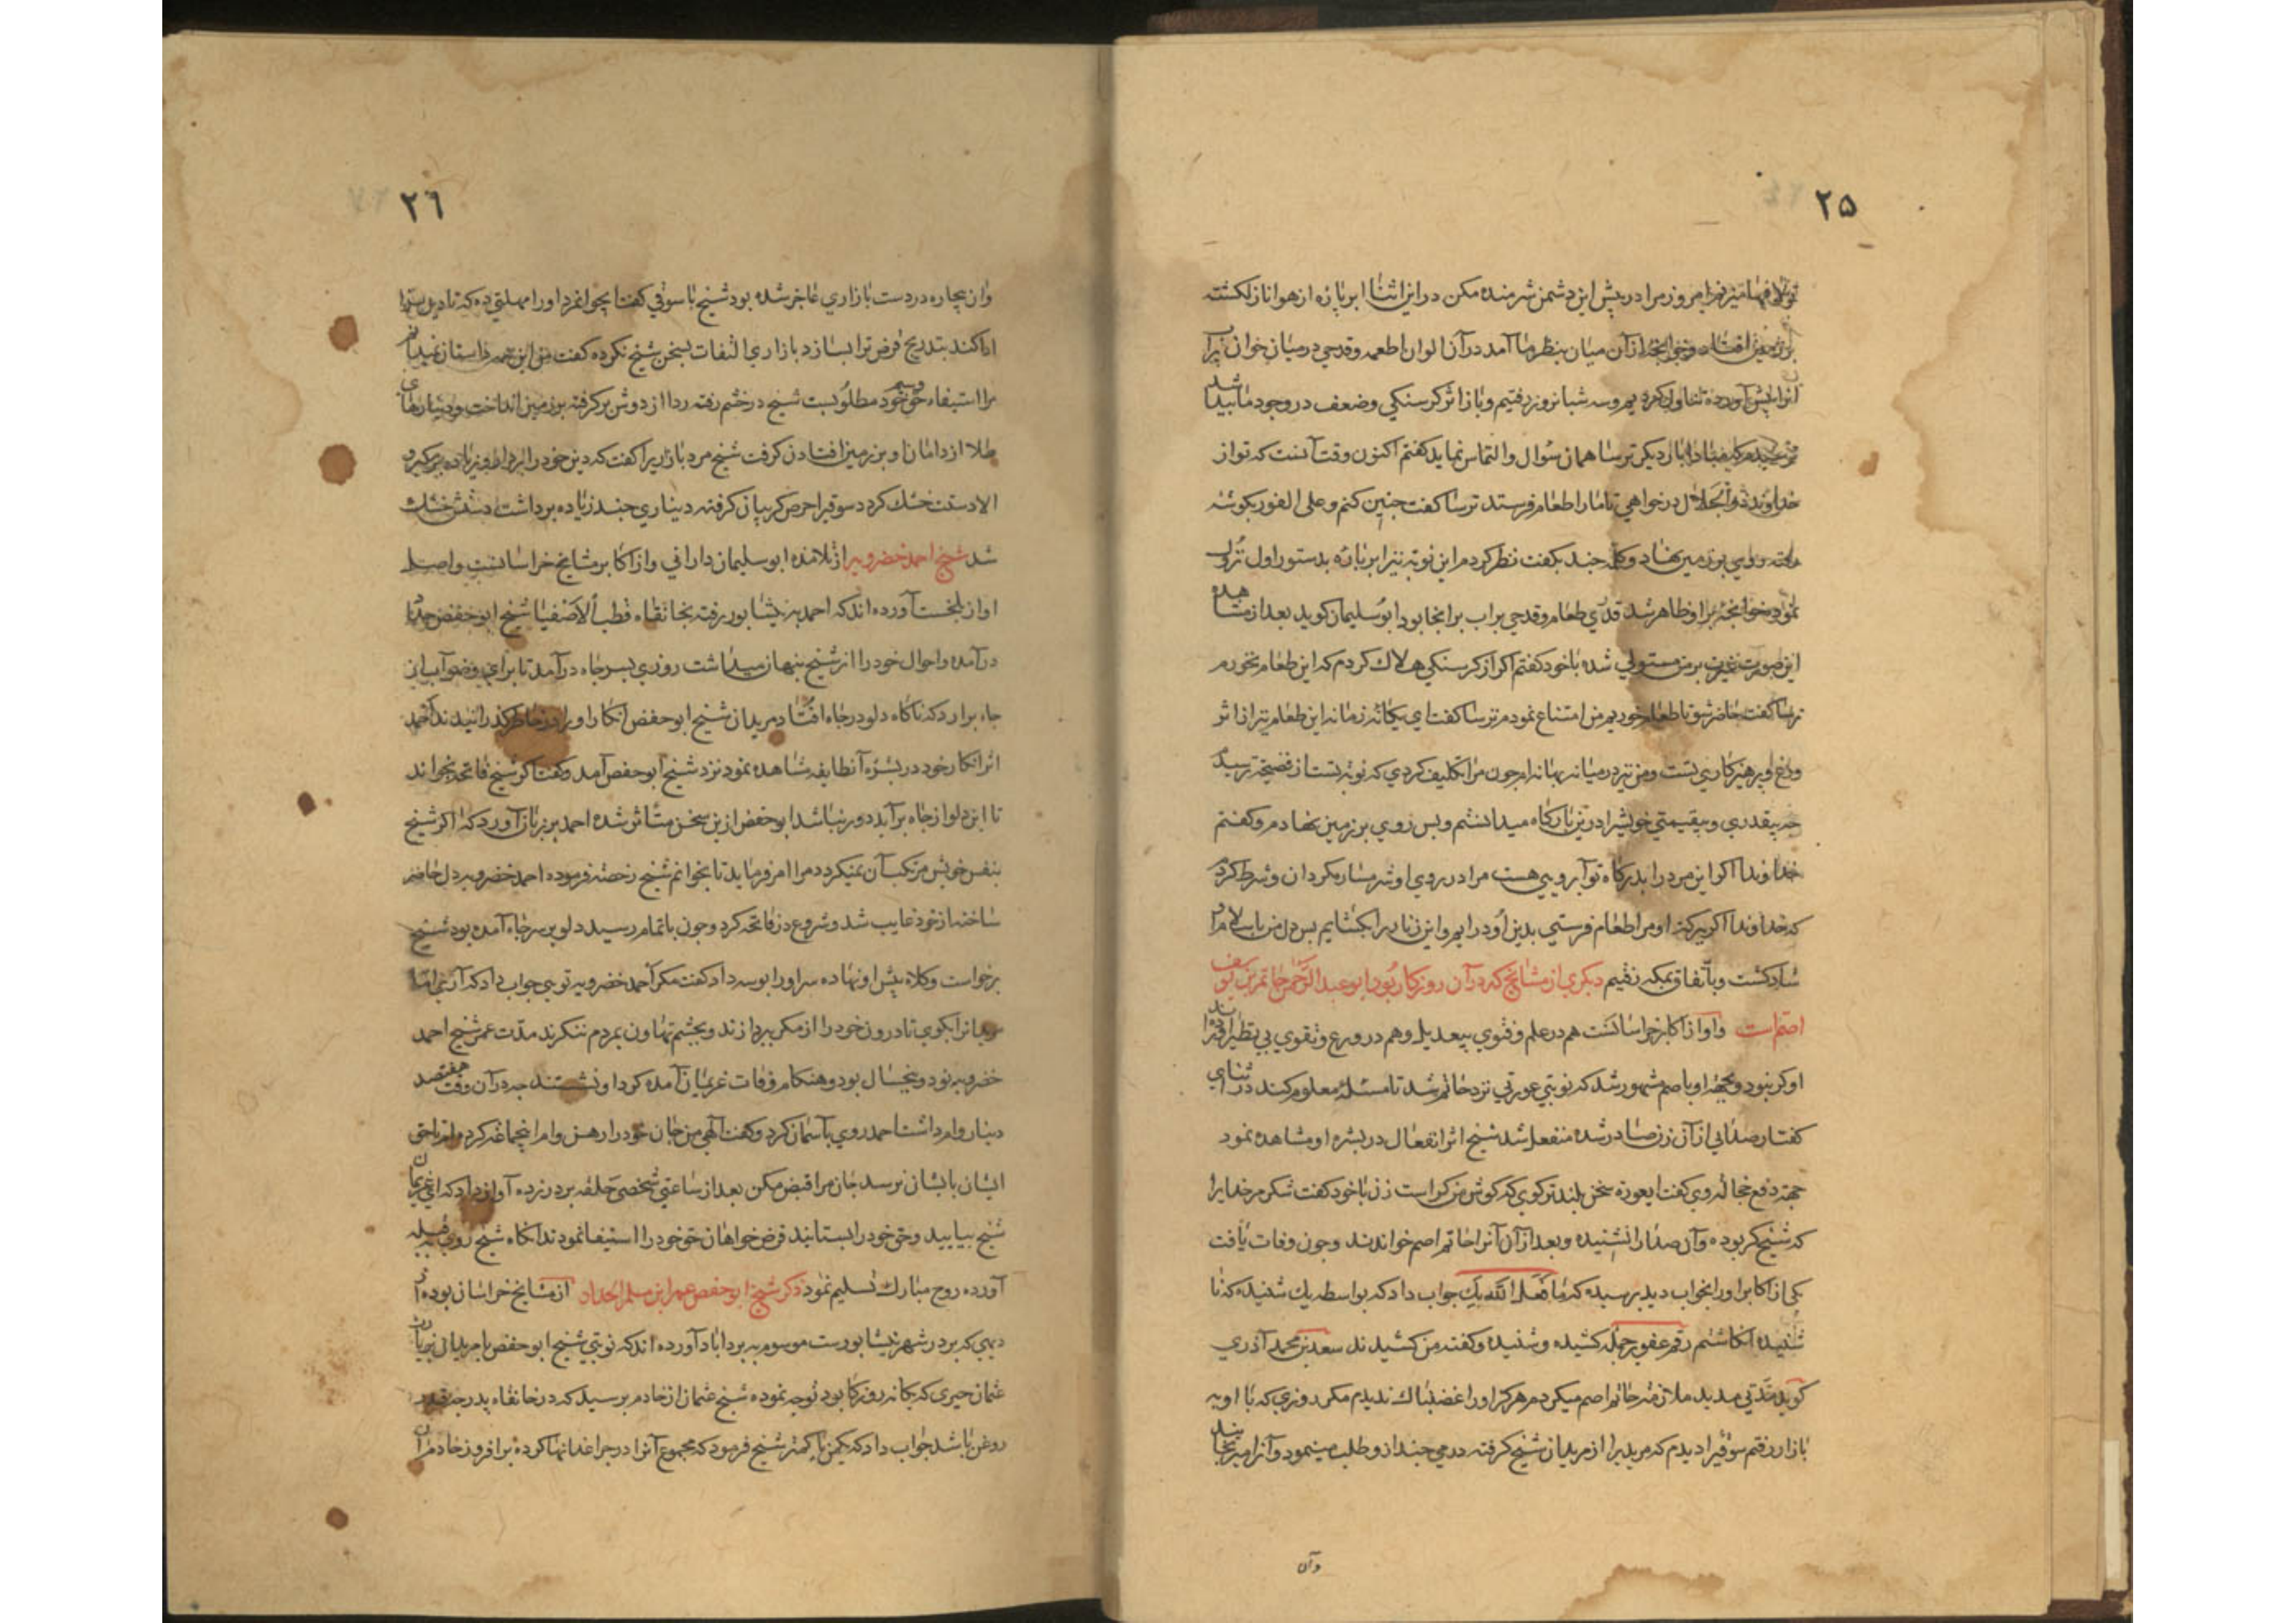 ۲۵
امروز مرا در پیش این دشمن شرمنده مکن در این اثنا ابر پاره از هوا نازل کشته
بر زمین افتاد و خوانچه از آن میان بنظر ما آمد در آن الوان اطعمه و قدحی در میان خوان پرآب
آنرا پیش آورده تناول کردیم و سه شبانروز برفتیم و باز اثر کرسنکی و ضعف در وجود ما پیدا شد
ترسیدم که مبادا بار دیکر ترسا همان سوال و التماس نماید کفتم اکنون وقت آنست که تو از
خداوند ذوالجلال درخواهی تا ما را طعام فرستد ترسا کفت چنین کنم و علی الفور بکوشه
رفته روی بر زمین نهاد و کلمه چند بکفت نظر کردم این نوبت نیز ابر پاره بدستور اول نزول
نمود و خوانچه برا و ظاهر شد قدری طعام و قدحی پر اب بر انجا بود ابو سلیمان کوید بعد از مشاهده
این صورت غیرت بر من مستولی شده با خود کفتم اکر از کرسنکی هلاک کردم که این طعام نخورم
ترسا کفت حاضر شو تا طعام خوریم من امتناع نمودم ترسا کفت ای یکانه زمانه این طعام نیز از اثر
ورع و پرهیزکاری تست و من نیز در میانه بهانه ام چون مرا تکلیف کردی که نوبه تست از فضیحت ترسیدم
چه بیقدری و بیقیمتی خویشرا درین بارکاه میدانستم و بس روی بر زمین نهادم و کفتم
خداوندا اکر این مرد را بدرکاه تو آبرویی هست مرا در روی او شرمسار مکردان و شرط کردم
که خداوندا اکر ببرکت او مرا طعام فرستی بدین او درایم و این زنار را بکشایم بس دل من باسلام او
شاد کشت و باتفاق بمکه رفتیم دیکری از مشایخ که در آن روزکار بود ابو عبد الرحمن حاتم بن یوسف
اصم است و او از اکابر خراسانست هم در علم و فتوی بیعدیل و هم در ورع و تقوی بی نظیر
او کر نبود و بجهة او باصم مشهور شد که نوبتی عورتی نزد حاتم شد تا مسئله معلوم کند در اثنای
کفتار صدایی از آن زن صادر شده منفعل شد شیخ اثر انفعال در بشره او مشاهده نمود
جهة دفع خجالة وی کفت ایعورة سخن بلندتر کوی که کوش من کر است زن با خود کفت شکر مر خدایرا
که شیخ کر بوده و آن صدا را نشنیده و بعد از آن آنرا حاتم اصم خواندند و چون وفات یافت
یکی از اکابر او را بخواب دید پرسیده که ما فعل الله بک جواب داد که بواسطه یک شنیده که نا
شنیده انکاشتم رقم عفو بر جمله کشیده و شنیده و کفته من کشیدند سعد بن محمد آذری
کوید مدتی مدید ملازمت حاتم اصم میکردم هرکز او را غضبناک ندیدم مکر روزی که با او به
بازار رفتم سوقیرا دیدم که مریدیرا از مریدان شیخ کرفته درمی چند از و طلب مینمود
وآن
۲٦
وان بیچاره در دست بازاری عاجز شده بود شیخ با سوقی کفت ایجوانمرد او را مهلتی ده که تا دین ترا
ادا کند بتدریج قرض ترا بسازد بازاری التفات بسخن شیخ نکرده کفت من این همه داستان نمیدانم
مرا استیفاء حق خود مطلوبست شیخ در خشم رفته ردا از دوش برکرفته بر زمین انداخت و دینارهای
طلا از دامان او بر زمین افتادن کرفت شیخ مرد بازاریرا کفت که دین خود را بردار و زیاده بر مکیر و
الا دستت خشک کردد سوقیرا حرص کریبان کرفته دیناری چند زیاده برداشت دستش خشک
شد شیخ احمد خضرویه از تلامذه ابو سلیمان دارانی و از اکابر مشایخ خراسانست و اصل
او از بلخست آورده اند که احمد به نیشابور رفته بخانقاه قطب الاصفیا شیخ ابو حفص حداد
درآمده و احوال خود را از شیخ پنهان میداشت روزی بسر چاه درآمد تا برای وضو آب از
چاه برارد که ناکاه دلو در چاه افتاد مریدان شیخ ابو حفص انکار او را در خاطر کذرانیدند احمد
اثر انکار خود در بشره آنطایفه مشاهده نمود نزد شیخ ابو حفص آمد و کفت اکر شیخ فاتحه بخواند
تا این دلو از چاه برآید دور نباشد ابو حفص ازین سخن متاثر شده احمد بر زبان آورد که اکر شیخ
بنفس خویش مرتکب آن نمیکردد مرا امر فرماید تا بخوانم شیخ رخصة فرموده احمد خضرویه دل حاضر
ساخته از خود غایب شد و شروع در فاتحه کرد و چون باتمام رسید دلو بر سر چاه آمده بود شیخ
برخواست و کلاه پیش او نهاده سر او را بوسه داد کفت مکر احمد خضرویه تویی جواب داد که آری اما
مریدانرا بکوی تا درون خود را از مکر بپردازند و بچشم تهاون بمردم ننکرند مدت عمر شیخ احمد
خضرویه نود و پنجسال بود و هنکام وفات غریمان آمده کرد او نشستند چه در آن وقت هفتصد
دینار وام داشت احمد روی بآسمان کرد و کفت الهی من جان خود را رهن وام اینجماعه کرده ام تا حق
ایشان بایشان نرسد جان مرا قبض مکن بعد از ساعتی شخصی حلقه بر در زده آواز داد که ای غریمان
شیخ بیایید و حق خود را بستانید قرض خواهان حق خود را استیفا نمودند انکاه شیخ روی بقبله
آورده روح مبارک تسلیم نمود ذکر شیخ ابو حفص عمر ابن سلم الحداد از مشایخ خراسان بوده از
دیهی که بر در شهر نیشابورست موسوم به برداباد آورده اند که نوبتی شیخ ابو حفص با مریدان بزیارت
عثمان حیری که یکانه روزکار بود توجه نموده شیخ عثمان از خادم پرسید که در خانقاه پدر چه قدر
روغن باشد جواب داد که یکمن یا کمتر شیخ فرمود که مجموع آنرا در چراغدانها کرده برافروز خادم